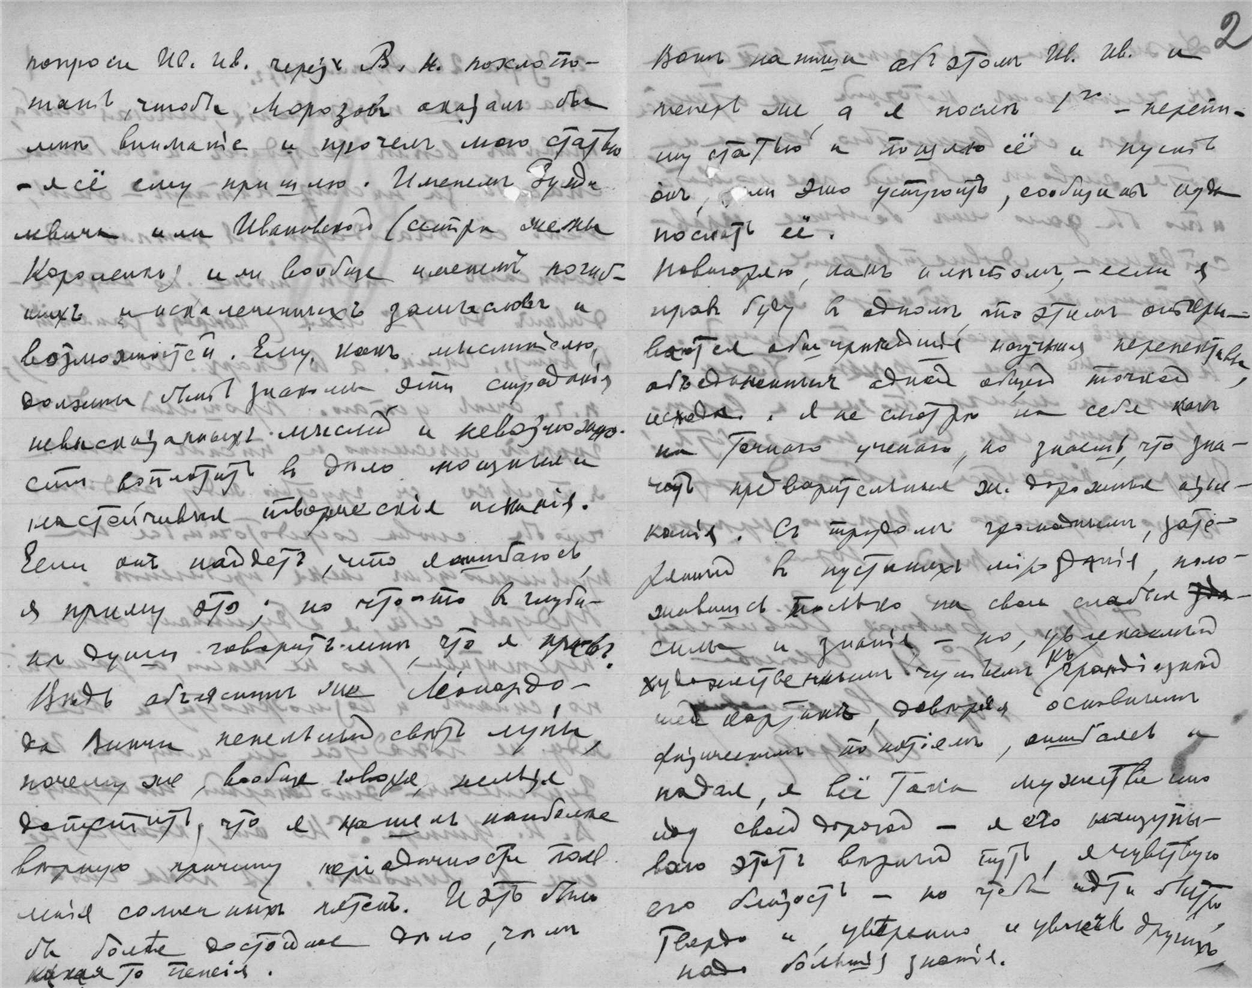 попроси Ив. Ив. через В. Н. похлопо-
тать чтобы Морозов оказал бы
мне внимание и прочел мою статью
– я её ему пришлю. Именем
или Ивановской (сестра жены
Короленко) или вообще именем погиб-
ших и искалеченных замыслов и
возможностей. Ему, как мыслителю,
должны быть знакомы эти страдания
невысказанных мыслей и невозможно-
сти воплотить в дело мощныя и
настойчивыя творческия искания.
Если он найдет, что я ошибаюсь,
я приму это; но что-то в глуби-
не души говорит мне, что я прав?
Ведь объяснил же Леонардо-
да Винчи пепельный свет луны,
почему же, вообще говоря, нельзя
допустить, что я нашел наиболее
верную причину периодичности появ
ления солнечных пятен. И это было
бы более достойное дело, чем
какая то пенсия.
2
Вот напиши об этом Ив. Ив. и
теперь же, а я после 1го – перепи-
шу статью и пошлю её и пусть
он, если это устроит, сообщит куда
послать её.
Повторяю, как и летом, – если я
прав буду в одном, то этим откры-
ваются обширнейшия научныя перспективы,
объединенныя одной общей точкой
исхода. Я не смотрю на себя как
на точного ученого, но знаешь, что зна-
чит предварительныя ж. дорожныя изыс-
кания. С трудом громадным, зате-
рянный в пустынях мироздания, поло-
жившись только на свои слабыя
силы и знания – но, увлекаемый
художественным чутьем к грандиозной
картине, доверяя основным
физическим понятиям, ошибаясь и
падая, я всё таки мужественно
иду своей дорогой – я нащупы-
ваю этот верный путь, я чувствую
его близость – но чтобы идти быстро,
твердо и уверенно и увлечь других
надо больших знаний.